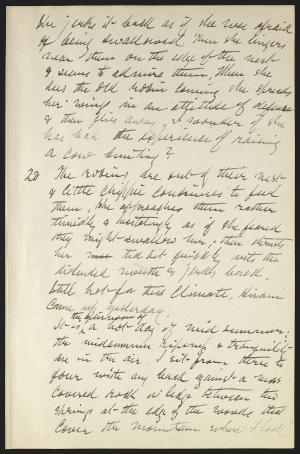 She jerks it back as if she was afraid
of being swallowed. Then she lingers
near them on the edge of the nest
& seems to admire them. When she
sees the old robin coming she spreads
her wings in an attitude of defence
& then flies away. I wonder if she
has had the experience of raising
a cow bunting?
20 The robins are out of their nest
& little chippie continues to feed
them. She approaches them rather
timidly & hesitatingly as if she feared
they might swallow her, then thrusts
her tid bit quickly into the
distended mouth & jerks back.
Still hot for this climate. Hiram
came up yesterday.
It is the afternoon of a hot day of mid summer;
the midsummer ripeness & tranquility
are in the air. I sit from three to
four with my back against a moss
covered rock or ledge between two
springs at the edge of the woods that
cover the mountain where I look